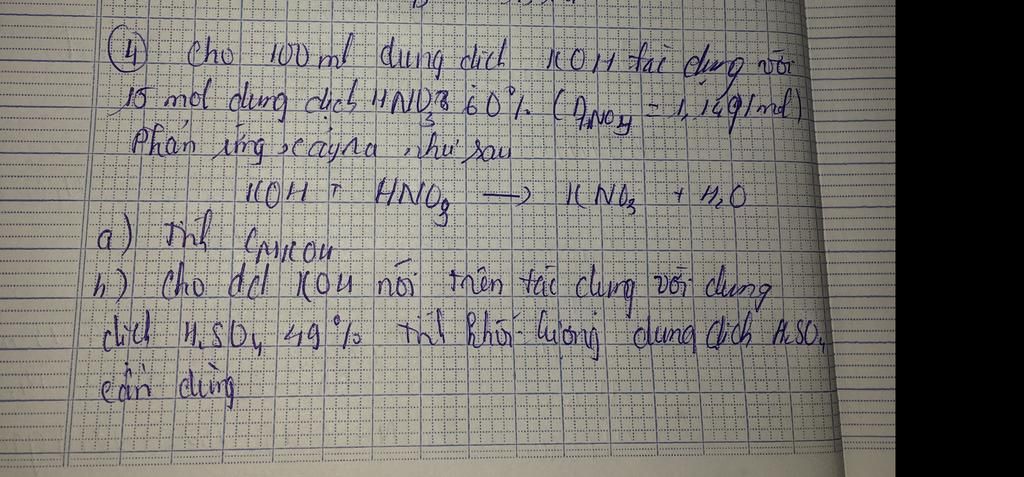 ④ Cho 100 ml dung dịch KOH tác dụng với
15 mol dung dịch HNO3 60% (DHNO3 = 1,14g/ml)
Phản ứng xảy ra như sau
KOH + HNO3 → KNO3 + H2O
a) Tính CMKOH
b) Cho dd KOH nói trên tác dụng với dung
dịch H2SO4 49% Tính khối lượng dung dịch H2SO4
cần dùng